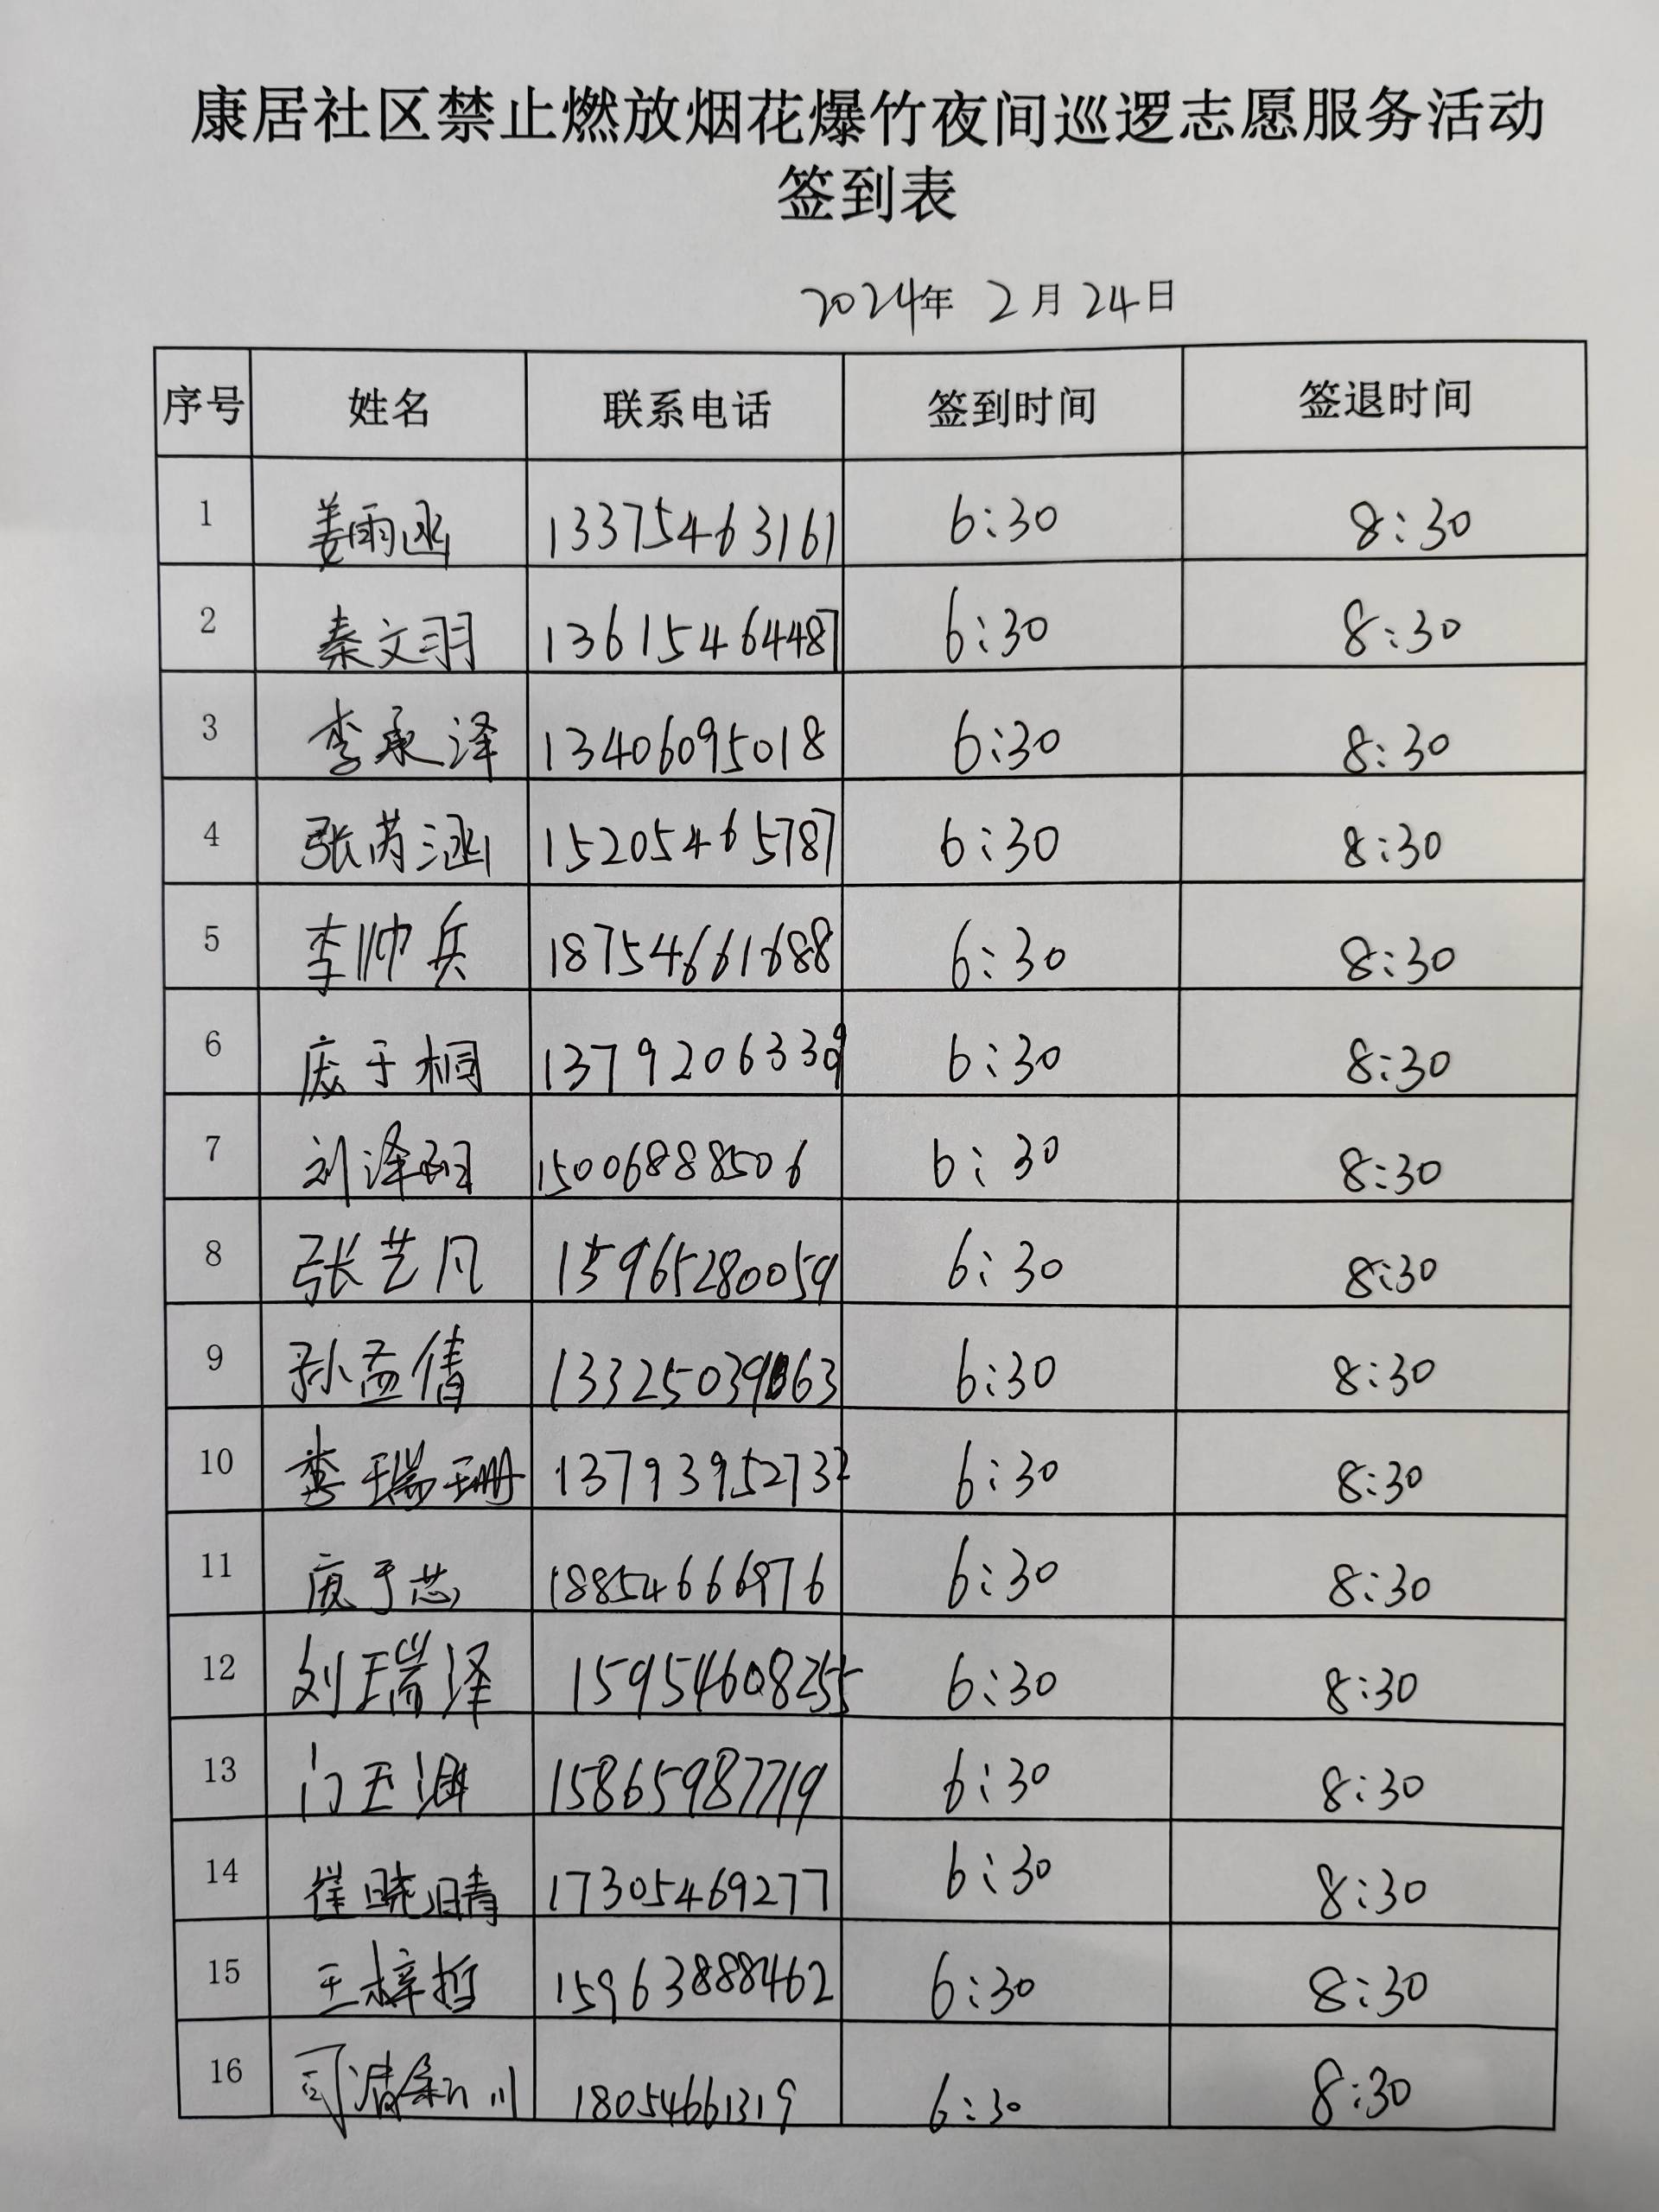 康居社区禁止燃放烟花爆竹夜间巡逻志愿服务活动
签到表
2024年 2月24日
序号 姓名 联系电话 签到时间 签退时间
1 姜雨函 13375463161 6:30 8:30
2 秦文羽 13615464487 6:30 8:30
3 李承泽 13406095018 6:30 8:30
4 张芮涵 15205465787 6:30 8:30
5 李帅兵 18754661688 6:30 8:30
6 庞于桐 6:30 8:30
7 15006888506 6:30 8:30
8 张艺凡 15965280059 6:30 8:30
9 孙益倩 6:30 8:30
10 李瑞珊 13793952732 6:30 8:30
11 庞于芯 6:30 8:30
12 刘瑞泽 15954608255 6:30 8:30
13 门玉涵 15865987719 6:30 8:30
14 崔晓晴 17305469277 6:30 8:30
15 王梓哲 15963888462 6:30 8:30
16 18054661319 6:30 8:30